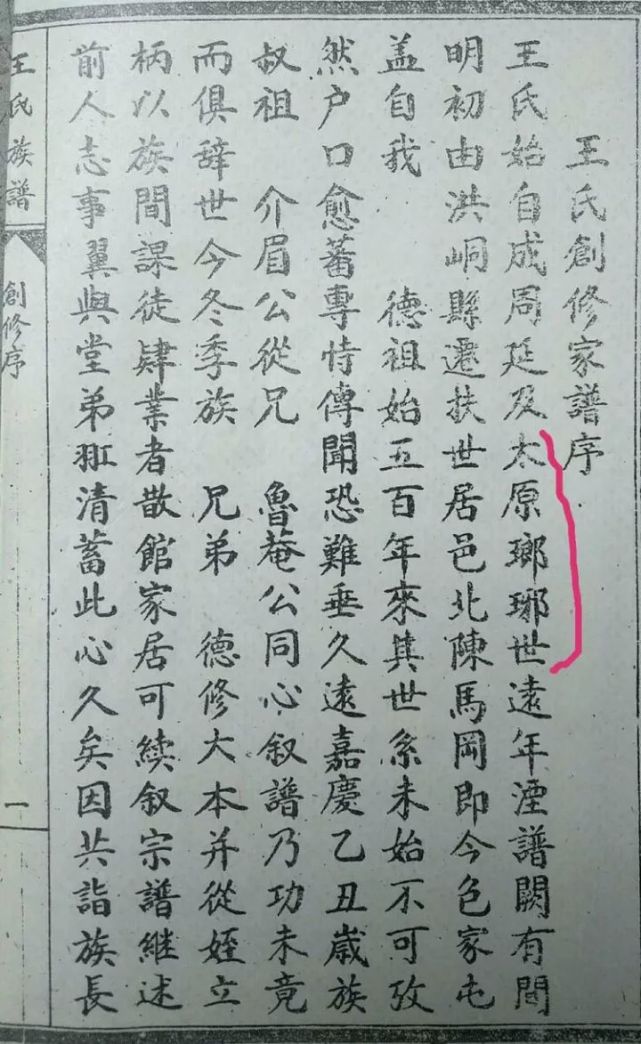 王氏創修家譜序
王氏始自成周延及太原瑯琊世遠年湮譜闕有間
明初由洪峒縣遷扶世居邑北陳馬岡即今色家屯
盖自我 德祖始五百年來其世系未始不可攷
然户口愈蕃專恃傳聞恐難垂久遠嘉慶乙丑歲族
叔祖 介眉公從兄 魯菴公同心叙譜乃功未竟
而俱辞世今冬季族 兄弟 德修大本并從姪立
柄以族間課徒肄業者散館家居可續叙宗譜継述
前人志事翼與堂弟䎱清蓄此心久矣因共詣族長
王氏族譜
創修序
一